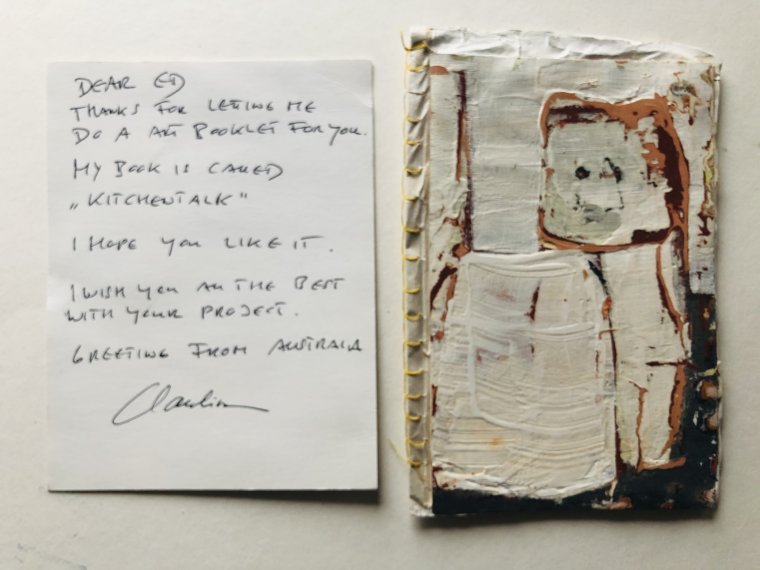 DEAR ED
THANKS FOR LETTING ME
DO A ART BOOKLET FOR YOU.
MY BOOK IS CALLED
„KITCHENTALK"
I HOPE YOU LIKE IT.
I WISH YOU ALL THE BEST
WITH YOUR PROJECT.
GREETING FROM AUSTRALIA